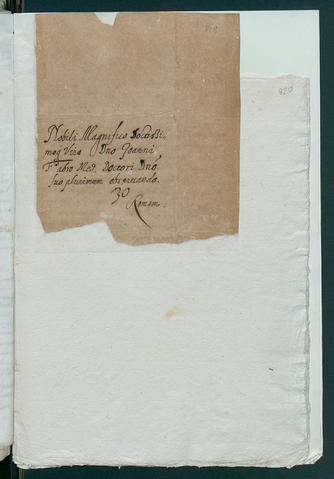 819
820
Nobili Magnifico Doctissi-
moq Viro Dno Joanni
Fabro Med. Doctori Dno
suo plurimum obseruando.
30
Romam.